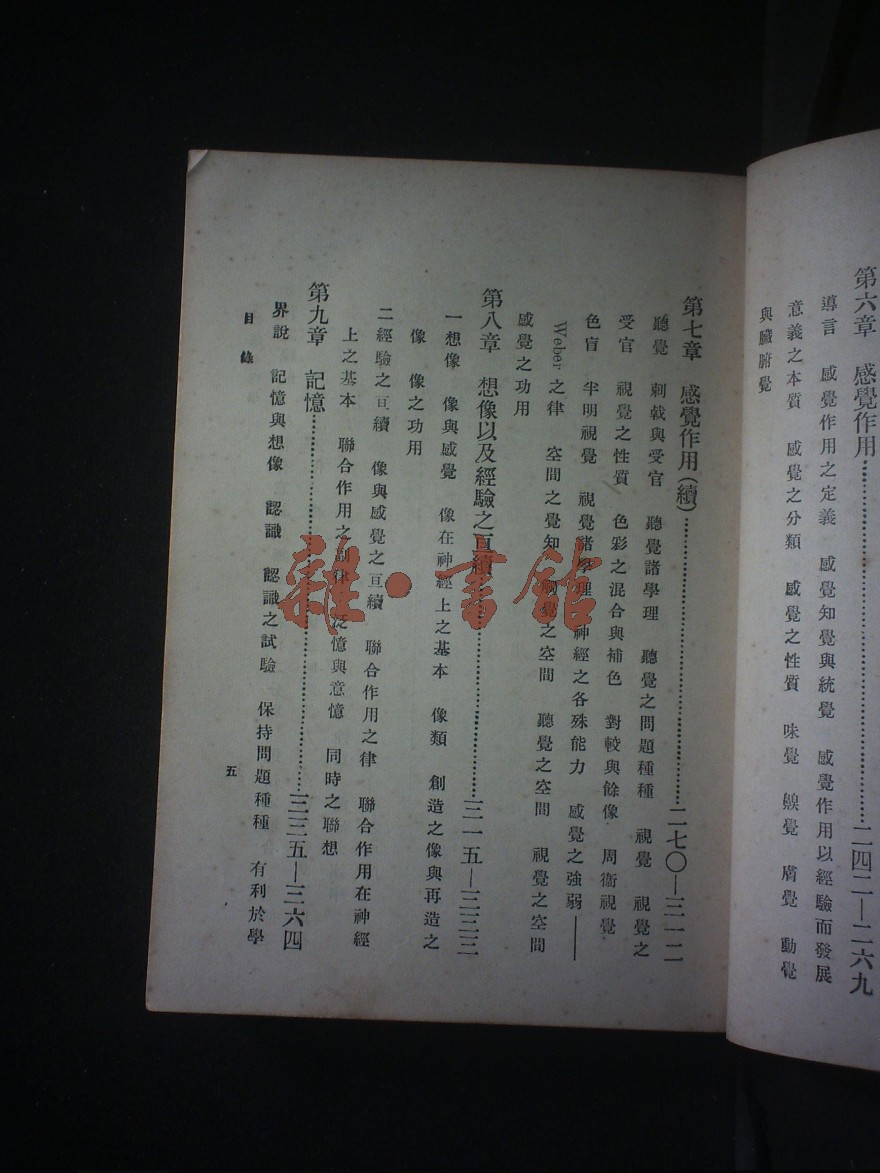 第六章　感覺作用……二四二—二六九
導言　感覺作用之定義　感覺知覺與統覺　感覺作用以經驗而發展
意義之本質　感覺之分類　感覺之性質　味覺　嗅覺　膚覺　動覺
與臟腑覺
第七章　感覺作用(續)……二七〇—三一二
聽覺　刺戟與受官　聽覺諸學理　聽覺之問題種種　視覺　視覺之
受官　視覺之性質　色彩之混合與補色　對較與餘像　周衞視覺
色盲　半明視覺　視覺諸學理　神經之各殊能力　感覺之強弱——
Weber之律　空間之覺知　觸覺之空間　聽覺之空間　視覺之空間
感覺之功用
第八章　想像以及經驗之亘續……三一五—三三三
一想像　像與感覺　像在神經上之基本　像類　創造之像與再造之
像　像之功用
二經驗之亘續　像與感覺之亘續　聯合作用之律　聯合作用在神經
上之基本　聯合作用之副律　泛憶與意憶　同時之聯想
第九章　記憶……三三五—三六四
界說　記憶與想像　認識　認識之試驗　保持問題種種　有利於學
目錄
五
雜·書館